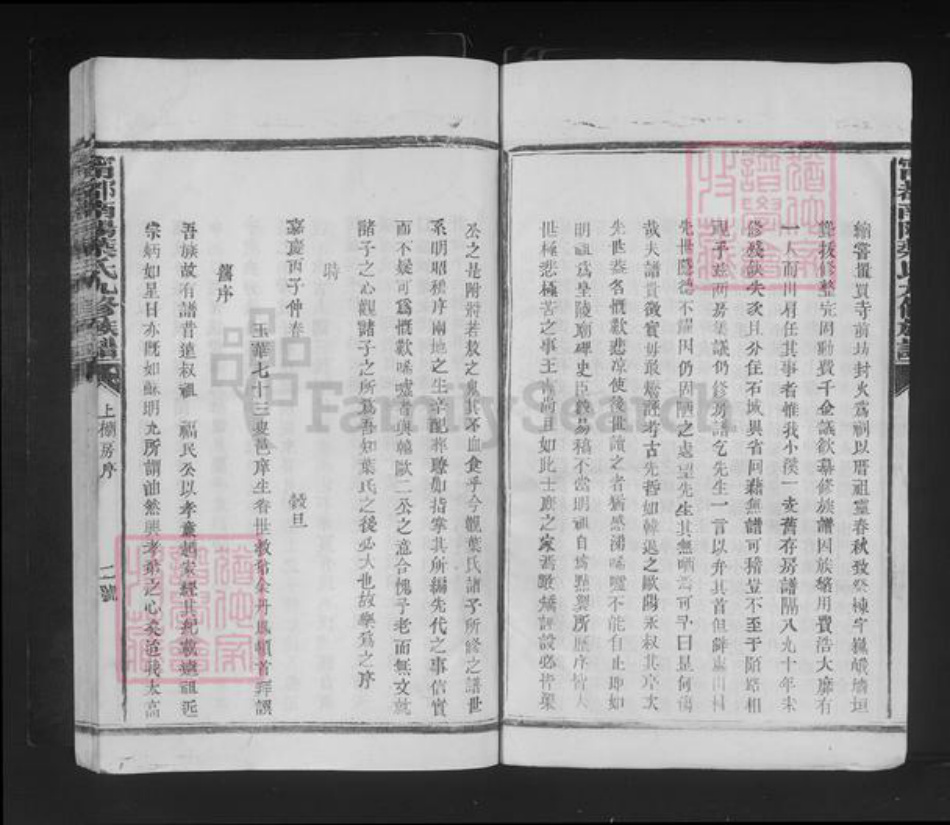 寧都南陽葉氏九修族譜
翰嘗置買寺前坊封火爲祠以厝祖靈春秋致祭棟宇巍峨墻垣
修整完固動費千金議欲纂修族譜因族繁用費浩大靡有
一人而出肩任其事者惟我小溪一支舊存房譜隔八九十年未
修殘缺失次且分住石城異省同籍無譜可稽豈不至于陌路相
視乎爰兩房集議仍修房譜乞先生一言以弁其首但
先世隱德不耀因仍固陋之處望先生其無哂焉可乎曰是何傷
哉夫譜貴徵實毋敢焉考古先哲如韓退之歐陽永叔其序次
先世蓋名慨歎悲涼使後世讀之者猶感涕唏噓不能自止即如
明祖爲皇陵廟碑史臣數易稿不當明祖自爲點製所歷序皆人
世極悲極苦之事王者尚且如此士庶之家焉敢矯誣設必皆梁
公之是附將若敖之鬼其不血食乎今觀葉氏諸子所修之譜世
系明昭穆序兩地之生卒配葬瞭如指掌其所編先代之事信實
而不疑可爲慨歎唏噓者與韓歐二公之意合愧予老而無文就
諸子之心觀諸子之所爲吾知葉氏之後必大也故樂爲之序
時
嘉慶丙子仲春 穀旦
玉華七十三叟邑庠生眷世教弟余丹鳳頓首拜譔
舊序
吾族故有譜昔進叔祖 福民公以孝義起家經其紀載遠祖近
宗炳如星日亦既如蘇明允所謂油然興孝弟之心矣迨我太高
寧都南陽葉氏九修族譜
上欄房序
二號
FamilySearch